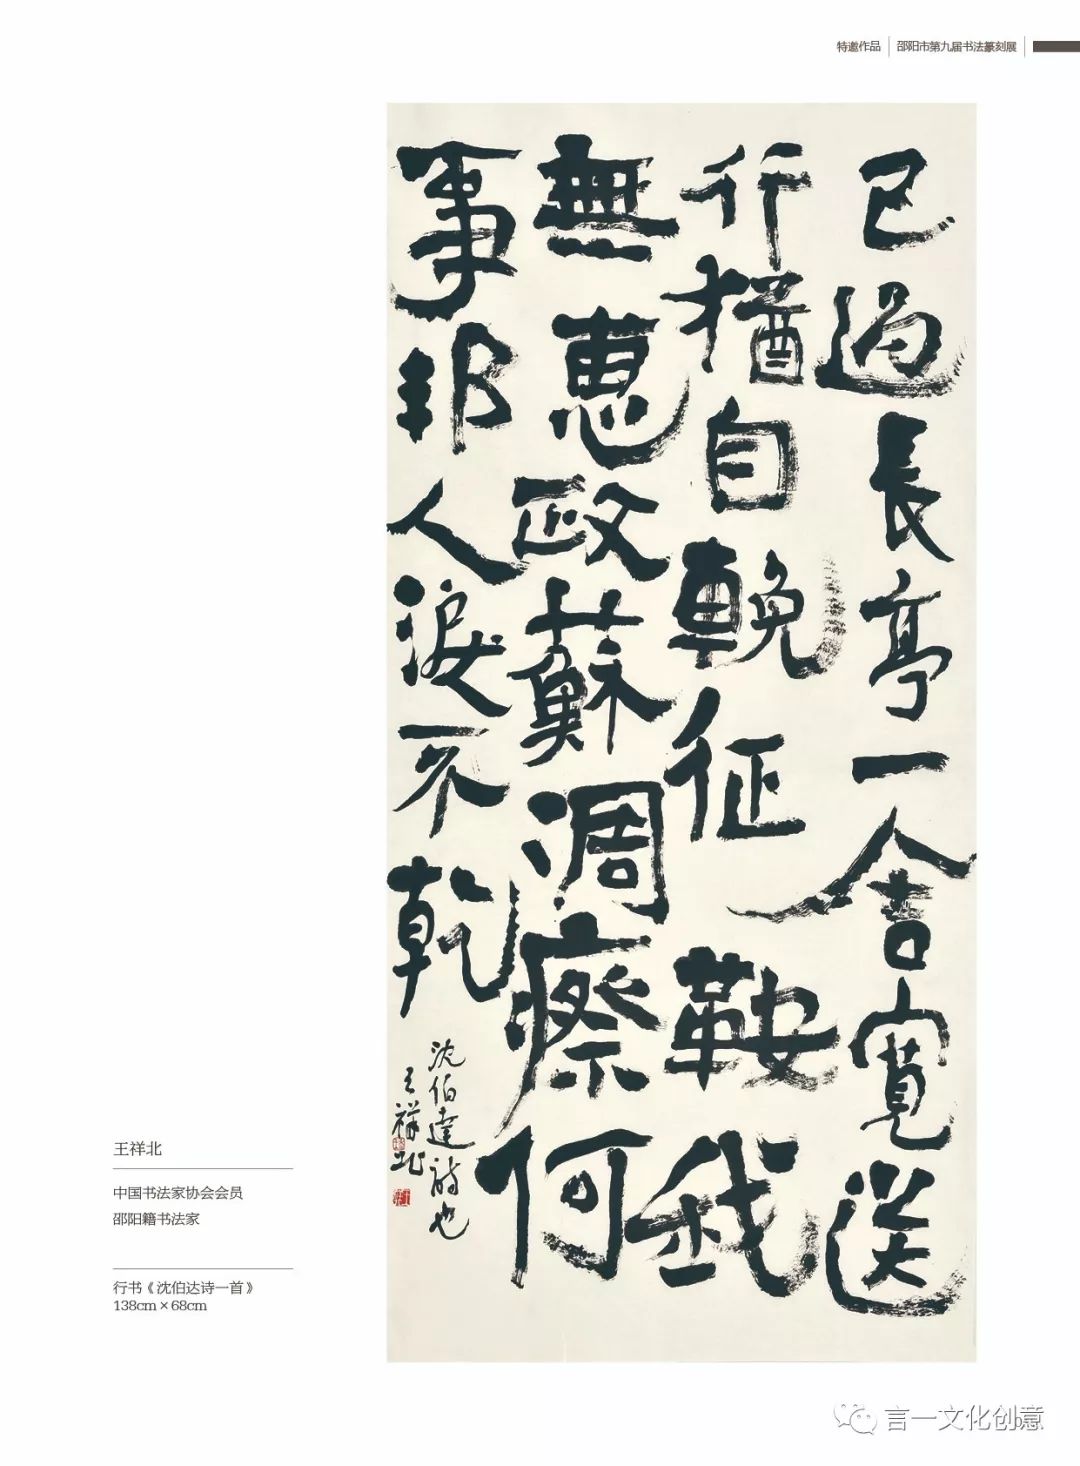 特邀作品 邵阳市第九届书法篆刻展
已過長亭一舍寬送
行猶自輓征鞍我
無惠政蘇凋瘵何
事邦人淚不乾
沈伯達詩也
王祥北
王祥北
中国书法家协会会员
邵阳籍书法家
行书《沈伯达诗一首》
138cm×68cm
言一文化创意